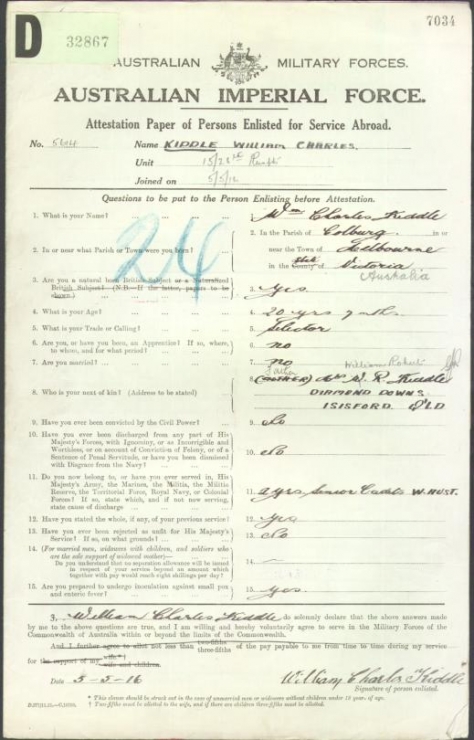 D
32867
7034
AUSTRALIAN MILITARY FORCES.
AUSTRALIAN IMPERIAL FORCE.
Attestation Paper of Persons Enlisted for Service Abroad.
No. Name KIDDLE WILLIAM CHARLES.
Unit
Joined on 5/5/16
Questions to be put to the Person Enlisting before Attestation.
24
1. What is your Name? ... 1. Wm Charles Kiddle
2. In or near what Parish or Town were you born? ... 2. In the Parish of Coburg in or
near the Town of Melbourne
in the County of State Victoria
Australia
3. Are you a natural born British subject or a Naturalized
British Subject? (N.B.—If the latter, papers to be
shown.) 3. Yes
4. What is your Age? ... 4. 20 yrs mths
5. What is your Trade or Calling? ... 5. Selector
6. Are you, or have you been, an Apprentice? If so, where,
to whom, and for what period? ... 6. no
7. Are you married? ... 7. no
William Robert
Father
8. Who is your next of kin? (Address to be stated) 8. (MOTHER) W. R. Kiddle
DIAMOND DOWNS
ISISFORD Q'LD
9. Have you ever been convicted by the Civil Power? ... 9. No
10. Have you ever been discharged from any part of His
Majesty's Forces, with Ignominy, or as Incorrigible and
Worthless, or on account of Conviction of Felony, or of a
Sentence of Penal Servitude, or have you been dismissed
with Disgrace from the Navy? ... 10. No
11. Do you now belong to, or have you ever served in, His
Majesty's Army, the Marines, the Militia, the Militia
Reserve, the Territorial Force, Royal Navy, or Colonial
Forces? If so, state which, and if not now serving,
state cause of discharge 11. 2 yrs Senior Cadets
12. Have you stated the whole, if any, of your previous service? 12. Yes
13. Have you ever been rejected as unfit for His Majesty's
Service? If so, on what grounds? ... 13. No
14. (For married men, widowers with children, and soldiers who
are the sole support of widowed mother)—
Do you understand that no separation allowance will be issued
in respect of your service beyond an amount which
together with pay would reach eight shillings per day? 14. —
15. Are you prepared to undergo inoculation against small pox
and enteric fever? 15. Yes.
I, William Charles Kiddle do solemnly declare that the above answers made
by me to the above questions are true, and I am willing and hereby voluntarily agree to serve in the Military Forces of the
Commonwealth of Australia within or beyond the limits of the Commonwealth.
And I further agree to allot not less than two-fifths three-fifths of the pay payable to me from time to time during my service
for the support of my wife* wife and children.
Date 5-5-16 William Charles Kiddle
Signature of person enlisted.
* This clause should be struck out in the case of unmarried men or widowers without children under 18 years of age.
† Two-fifths must be allotted to the wife, and if there are children three-fifths must be allotted.